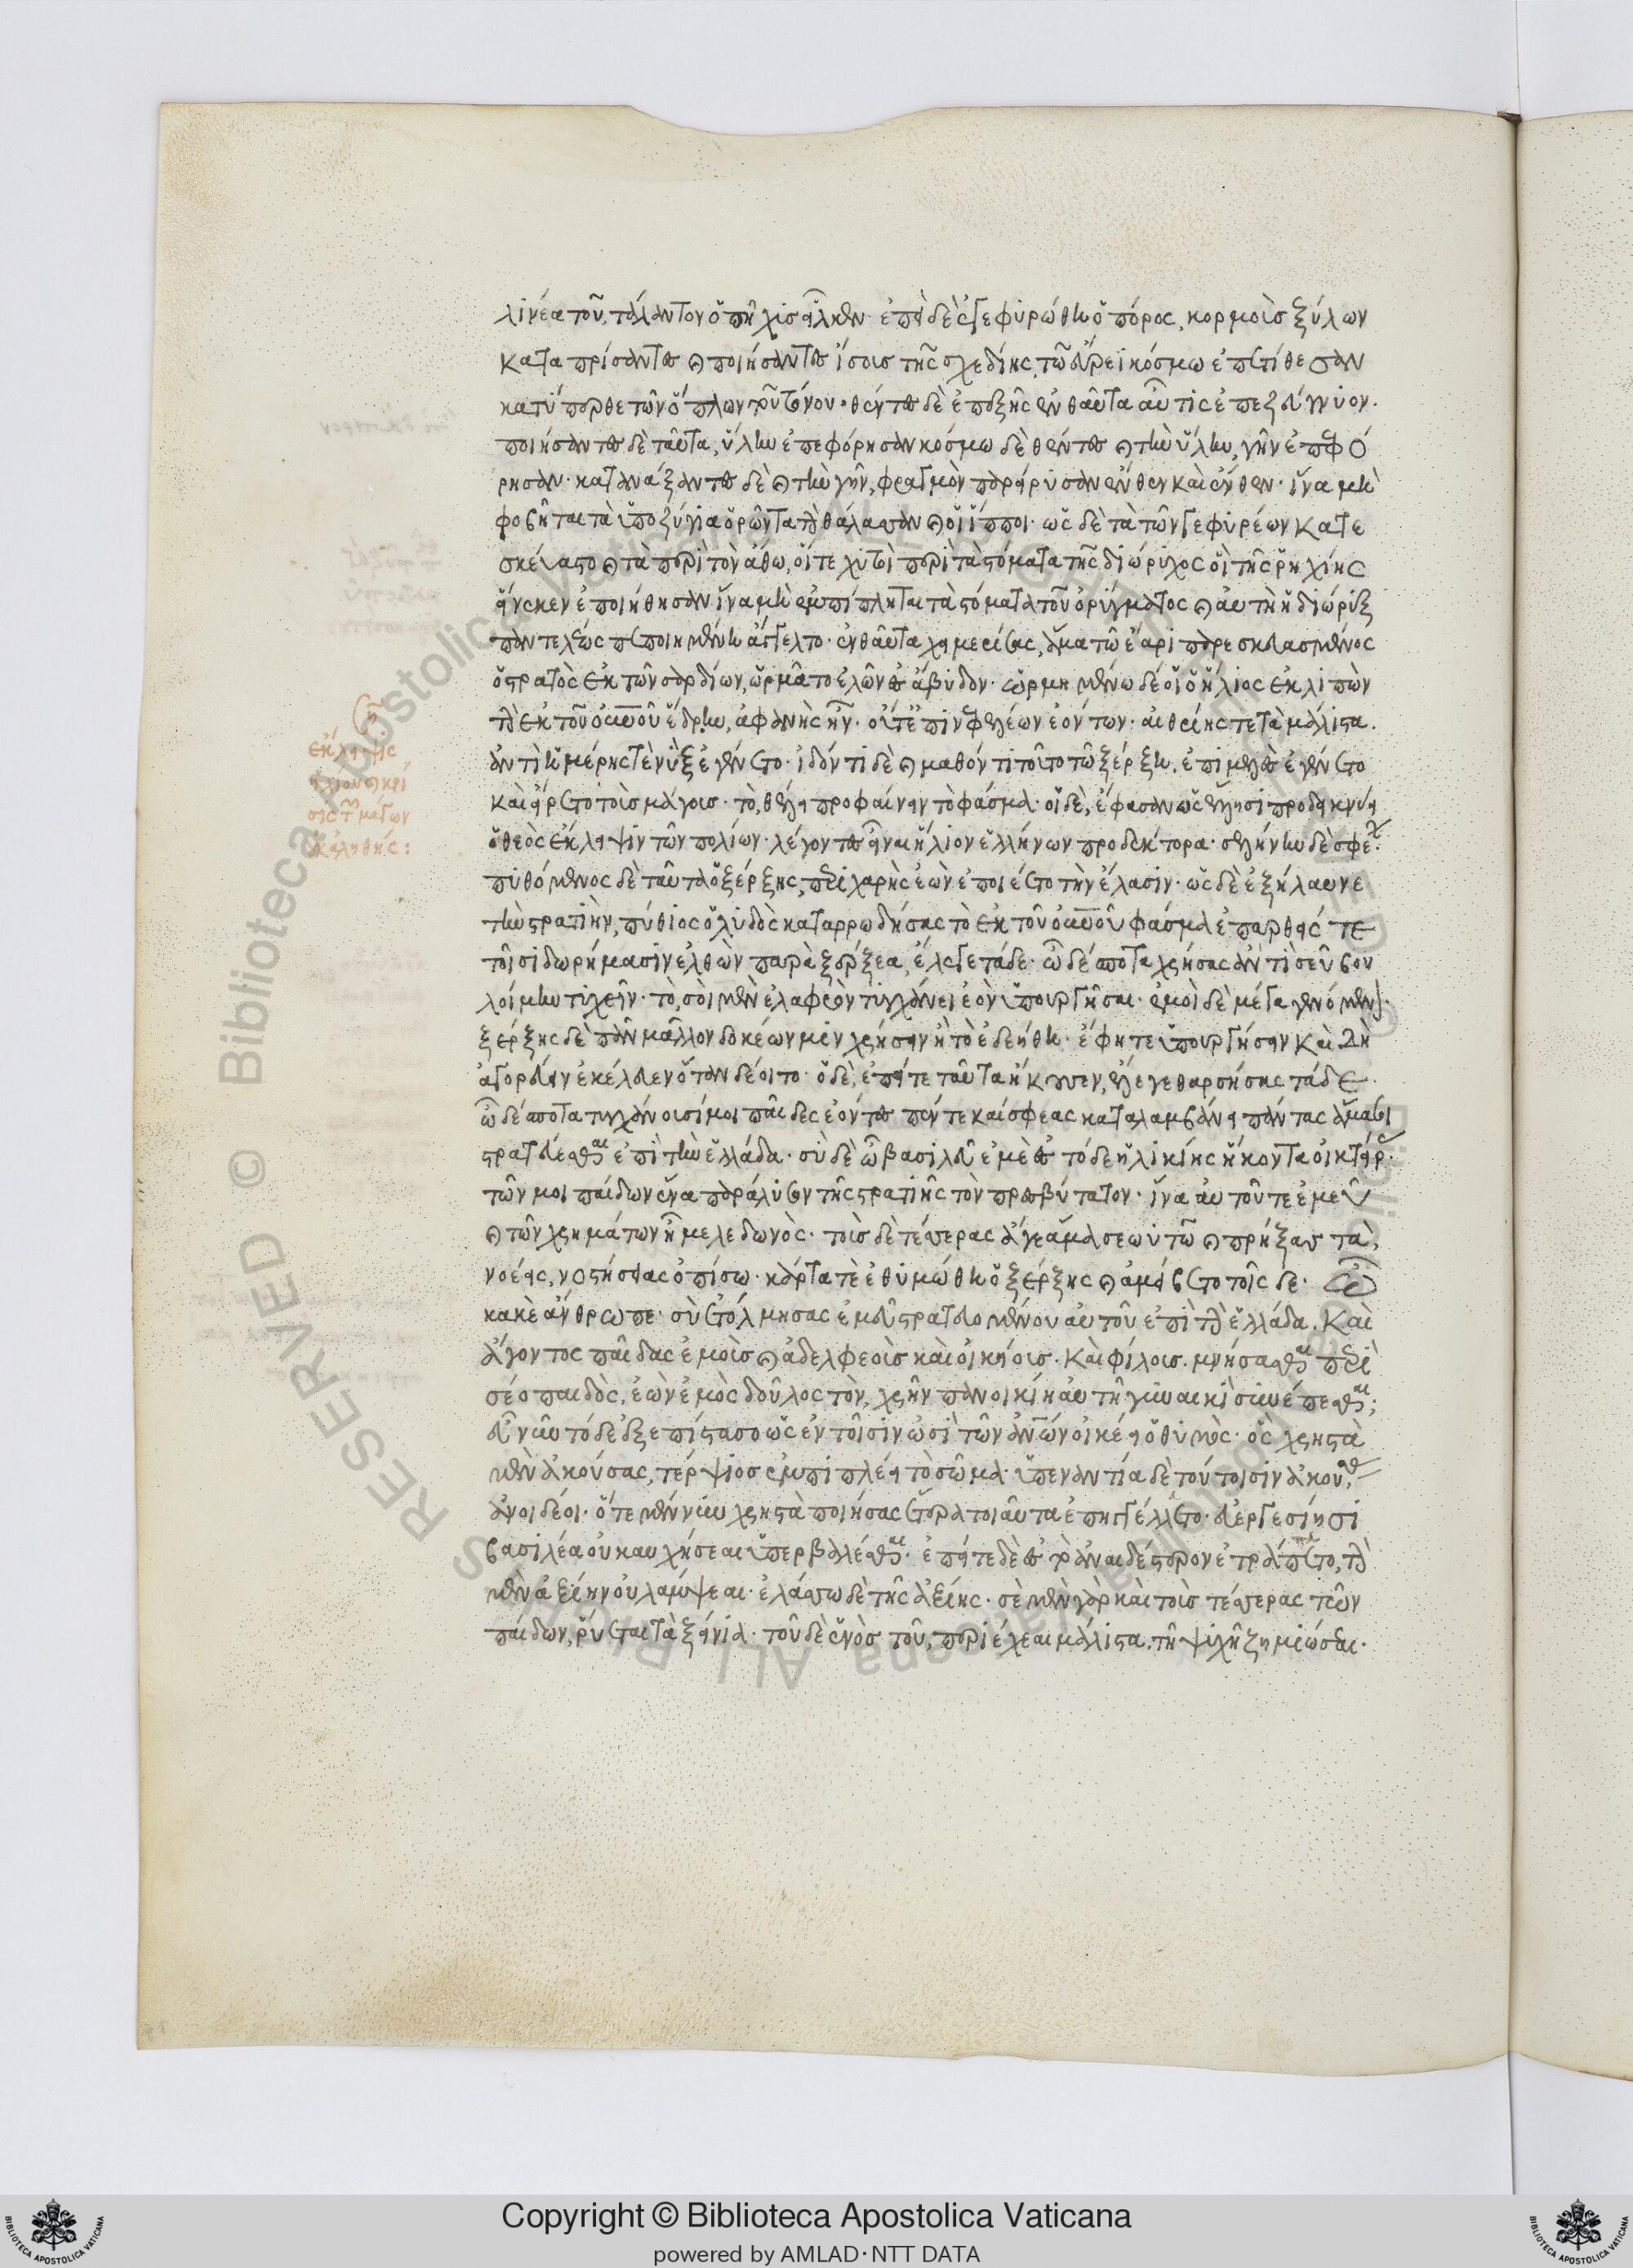 λίνεα τοῦ, τάλαντον ὁ πῆχυς εἷλκεν· ἐπεὶ δὲ ἐγεφυρώθη ὁ πόρος, κορμοὺς ξύλων
καταπρίσαντες καὶ ποιήσαντες ἴσους τῆς σχεδίης, τῶ εὔρεϊ κόσμω ἐπετίθεσαν
κατύπερθε τῶν ὅπλων τοῦ τόνου· θέντες δὲ ἐπεξῆς ἐνθαῦτα αὖτις ἐπεζεύγνυον.
ποιήσαντες δὲ ταῦτα, ὕλην ἐπεφόρησαν κόσμω δὲ θέντες καὶ τὴν ὕλην, γῆν ἐπεφό
ρησαν· κατανάξαντες δὲ καὶ τὴν γῆν, φραγμὸν παρείρυσαν ἔνθεν καὶ ἔνθεν· ἵνα μὴ
φοβῆται τὰ ὑποζύγια ὁρῶντα τὴν θάλασσαν καὶ οἱ ἵπποι· ὡς δὲ τὰ τῶν γεφυρέων κατε
σκεύαστο καὶ τὰ περὶ τὸν ἄθω, οἵ τε χυτοὶ περὶ τὰ στόματα τῆς διώρυχος οἳ τῆς ῥηχίης
εἵνεκεν ἐποιήθησαν ἵνα μὴ ἐμπίπληται τὰ στόματα τοῦ ὀρύγματος καὶ αὐτὴ ἡ διῶρυξ
παντελέως πεποιημένη ἄγγελτο· ἐνθαῦτα χειμερίσας, ἅμα τῶ ἔαρι παρεσκευασμένος
ὁ στρατὸς ἐκ τῶν σαρδίων, ὡρμᾶτο ἐλῶν ἐς ἄβυδον· ὡρμημένω δέ οἱ ὁ ἥλιος ἐκλιπὼν
τὴν ἐκ τοῦ οὐνοῦ ἕδρην, ἀφανὴς ἦν· οὔτ' ἐπινεφελέων ἐόντων· αἰθρίης τε τὰ μάλιστα.
ἀντὶ ἡμέρης τε νὺξ ἐγένετο· ἰδόντι δὲ καὶ μαθόντι τοῦτο τῶ ξέρξη, ἐπιμελὲς ἐγένετο
καὶ εἴρετο τοὺς μάγους· τὸ, θέλει προφαίνειν τὸ φάσμα· οἱ δὲ, ἔφασαν ὡς ἕλλησι προδεικνύει
ὁ θεὸς ἔκλειψιν τῶν πολίων· λέγοντες εἶναι ἥλιον ἑλλήνων προδέκτορα· σελήνην δὲ σφέ
πυθόμενος δὲ ταῦτα ὁ ξέρξης, περιχαρὴς ἐὼν ἐποιέετο τὴν ἔλασιν· ὡς δὲ ἐξήλαυνε
τὴν στρατιὴν, πύθιος ὁ λυδὸς καταρρωδήσας τὸ ἐκ τοῦ οὐνοῦ φάσμα ἐπαρθείς τε
τοῖσι δωρήμασιν ἐλθὼν παρὰ ξέρξεα, ἔλεγε τάδε· ὦ δέσποτα χρήσας ἄν τι σεῦ βου
λοίμην τυχεῖν· τὸ, σοὶ μὲν ἐλαφρὸν τυγχάνει ἐὸν ὑπουργῆσαι· ἐμοὶ δὲ μέγα γενόμεν
ξέρξης δὲ πᾶν μᾶλλον δοκέων μιν χρήσειν ἢ τὸ ἐδεήθη· ἔφη τε ὑπουργήσειν καὶ δὴ
ἀγορεύειν ἐκέλευεν ὅταν δέοιτο· ὁ δὲ, ἐπείτε ταῦτα ἤκουσεν, ἔλεγε θαρσήσας τάδε.
ὦ δέσποτα τυγχάνουσί μοι παῖδες ἐόντες πέντε καί σφεας καταλαμβάνει πάντας ἅμα σοὶ
στρατεύεσθαι ἐπὶ τὴν ἑλλάδα· σὺ δὲ ὦ βασιλεῦ ἐμὲ ἐς τόδε ἡλικίης ἥκοντα οἰκτείρ
τῶν μοι παίδων ἕνα παράλυσον τῆς στρατιῆς τὸν πρεσβύτατον· ἵνα αὐτοῦ τε ἐμεῦ
καὶ τῶν χρημάτων ἦ μελεδωνὸς· τοὺς δὲ τέσσερας ἄγε ἅμα σεωυτῶ καὶ πρήξας τὰ,
νοέεις, νοστήσειας ὀπίσω· κάρτα τε ἐθυμώθη ὁ ξέρξης καὶ ἀμείβετο τοῖσδε· ὦ
κακὲ ἄνθρωπε· σὺ ἐτόλμησας ἐμεῦ στρατευομένου αὐτοῦ ἐπὶ τὴν ἑλλάδα. καὶ
ἄγοντος παῖδας ἐμοὺς καὶ ἀδελφεοὺς καὶ οἰκηίους. καὶ φίλους. μνήσασθαι περὶ
σέο παιδὸς, ἐὼν ἐμὸς δοῦλος τὸν, χρῆν πανοικίη αὐτῆ γυναικὶ συνέπεσθαι;
εὖ νῦν τόδ' ἐξεπίστασο ὡς ἐν τοῖσιν ὠσὶ τῶν ἀνων οἰκέει ὁ θυμός· ὃς χρηστὰ
μὲν ἀκούσας, τέρψιος ἐμπιπλέει τὸ σῶμα· ὑπεναντία δὲ τούτοισιν ἀκούσ
ἀνοιδέει· ὅτε μέν νυν χρηστὰ ποιήσας ἕτερα τοιαῦτα ἐπηγγέλλετο· εὐεργεσίησι
βασιλέα οὐ καυχήσεαι ὑπερβαλέσθαι· ἐπείτε δὲ ἐς τὸ ἀναιδέστερον ἐτράπετο, τὴν
μὲν ἀξίην οὐ λάμψεαι· ἐλάσσω δὲ τῆς ἀξίης· σὲ μὲν γὰρ καὶ τοὺς τέσσερας τῶν
παίδων, ῥύεται τὰ ξείνια· τοῦ δὲ ἑνὸς τοῦ, περιέχεαι μάλιστα, τῆ ψυχῆ ζημιώσεαι.
ἔκλειψις
ἡλίου καὶ κρί
σις τῶν μάγων
οὐκ ἀληθής:
Copyright © Biblioteca Apostolica Vaticana
powered by AMLAD·NTT DATA